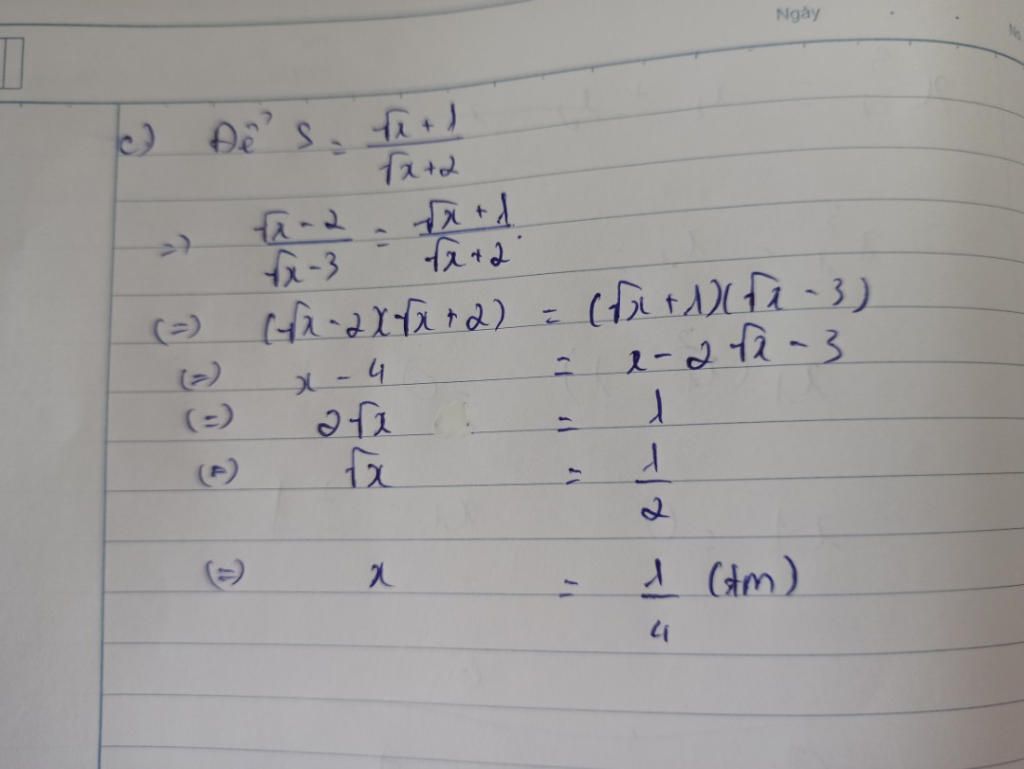 Ngày
No
c) Để S = (√x + 1)/(√x + 2)
=> (√x - 2)/(√x - 3) = (√x + 1)/(√x + 2).
(=) (√x - 2)(√x + 2) = (√x + 1)(√x - 3)
(=) x - 4 = x - 2√x - 3
(=) 2√x = 1
(=) √x = 1/2
(=) x = 1/4 (tm)